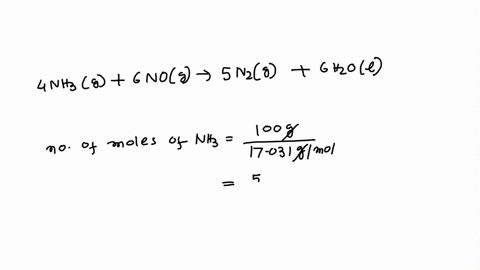 4NH₃(g) + 6NO(g) → 5N₂(g) + 6H₂O(l)
no. of moles of NH₃ = 100g / 17.031 g/mol
= 5